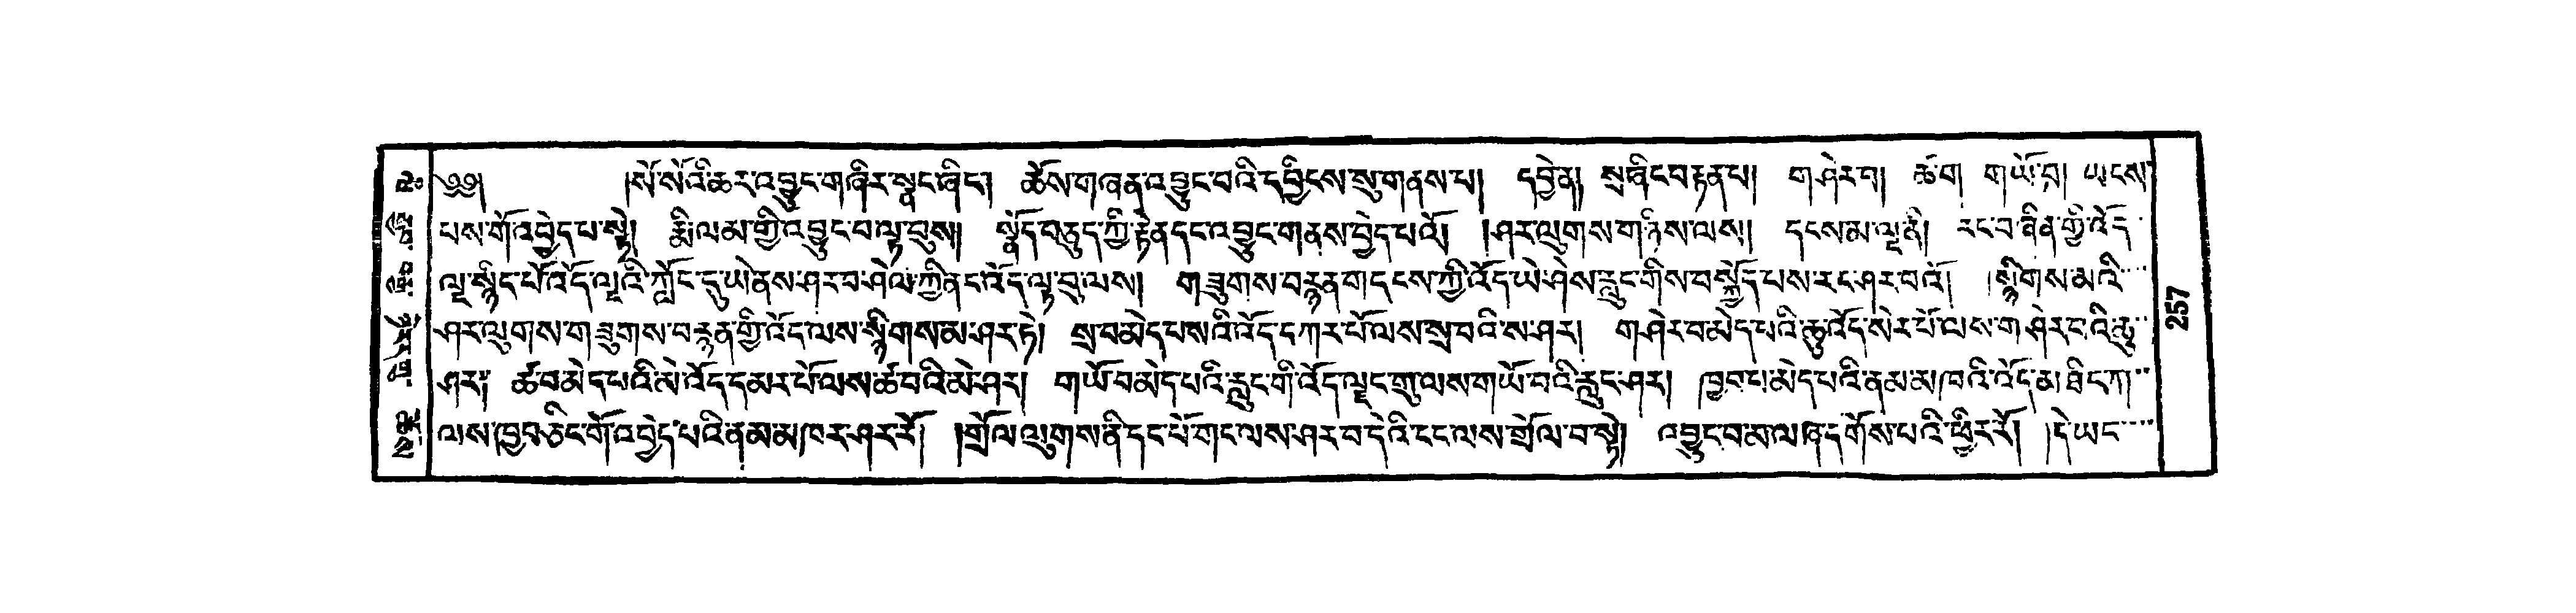 ༄༅། །སོ་སོའི་ཆར་འབྱུང་གཞིར་སྣང་ཞིང། ཆོས་གཞན་འབྱུང་བའི་དབྱིངས་སུ་གནས་པ། དབྱེ་ན། སྲ་ཞིང་བརྟན་པ། གཤེར་བ། ཚ་བ། གཡོ་བ། ཡངས་
པས་གོ་འབྱེད་པ་སྟེ། རྨི་ལམ་གྱི་འབྱུང་བ་ལྟ་བུས། སྣོད་བཅུད་ཀྱི་རྟེན་དང་འབྱུང་གནས་བྱེད་པའོ། །ཤར་ལུགས་གཉིས་ལས། དངས་མ་ལྔ་ནི། རང་བཞིན་གྱི་འོད་
ལྔ་སྙིང་པོ་འོད་ལྔའི་ཀློང་དུ་ཡེ་ནས་ཤར་བ་ཤེལ་ཀྱི་ནང་འོད་ལྟ་བུ་ལས། གཟུགས་བརྙན་གདངས་ཀྱི་འོད་ཡེ་ཤེས་རླུང་གིས་བསྐྱོད་པས་རང་ཤར་བའོ། །སྙིགས་མའི་
ཤར་ལུགས་གཟུགས་བརྙན་གྱི་འོད་ལས་སྙིགས་མ་ཤར་ཏེ། སྲ་བ་མེད་པས་འི་འོད་དཀར་པོ་ལས་སྲ་བའི་ས་ཤར། གཤེར་བ་མེད་པའི་ཆུ་འོད་སེར་པོ་ལས་གཤེར་བའི་ཆུ་
ཤར། ཚ་བ་མེད་པའི་མེ་འོད་དམར་པོ་ལས་ཚ་བའི་མེ་ཤར། གཡོ་བ་མེད་པའི་རླུང་གི་འོད་ལྗང་གུ་ལས་གཡོ་བའི་རླུང་ཤར། ཁྱབ་པ་མེད་པའི་ནམ་མཁའི་འོད་མཐིང་ཀ་
ལས་ཁྱབ་ཅིང་གོ་འབྱེད་པའི་ནམ་མཁར་ཤར་རོ། །གྲོལ་ལུགས་ནི་དང་པོ་གང་ལས་ཤར་བ་དེའི་ངང་ལས་གྲོལ་བ་སྟེ། འབྱུང་བ་མལ་ཞ་དགོས་པའི་ཕྱིར་རོ། །དེ་ཡང་